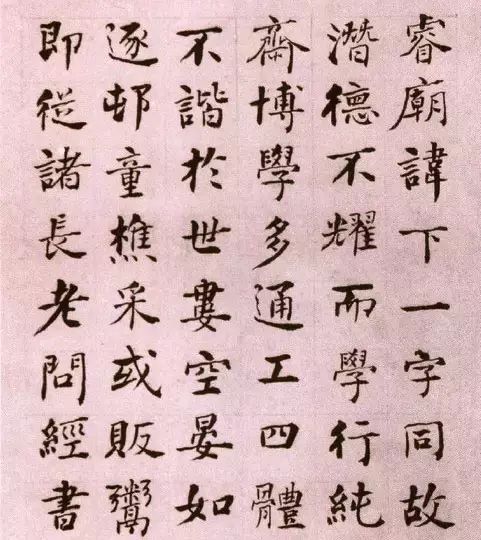 睿廟諱下一字同故
潛德不耀而學行純
齋博學多通工四體
不諧於世婁空晏如
逐邨童樵采或販鬻
即從諸長老問經書